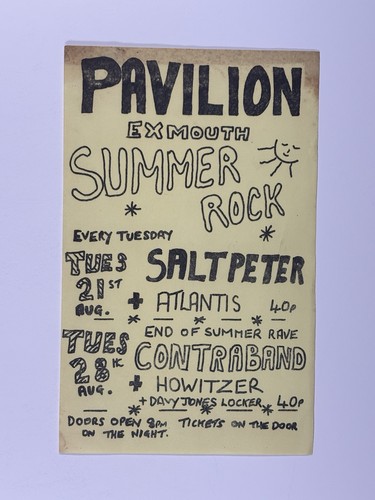 PAVILION
EXMOUTH
SUMMER
ROCK
EVERY TUESDAY
TUES
21ST
AUG.
SALTPETER
+ ATLANTIS 40p
TUES
28th
AUG.
END OF SUMMER RAVE
CONTRABAND
+ HOWITZER
+ DAVY JONES LOCKER 40p
DOORS OPEN 8PM TICKETS ON THE DOOR
ON THE NIGHT.